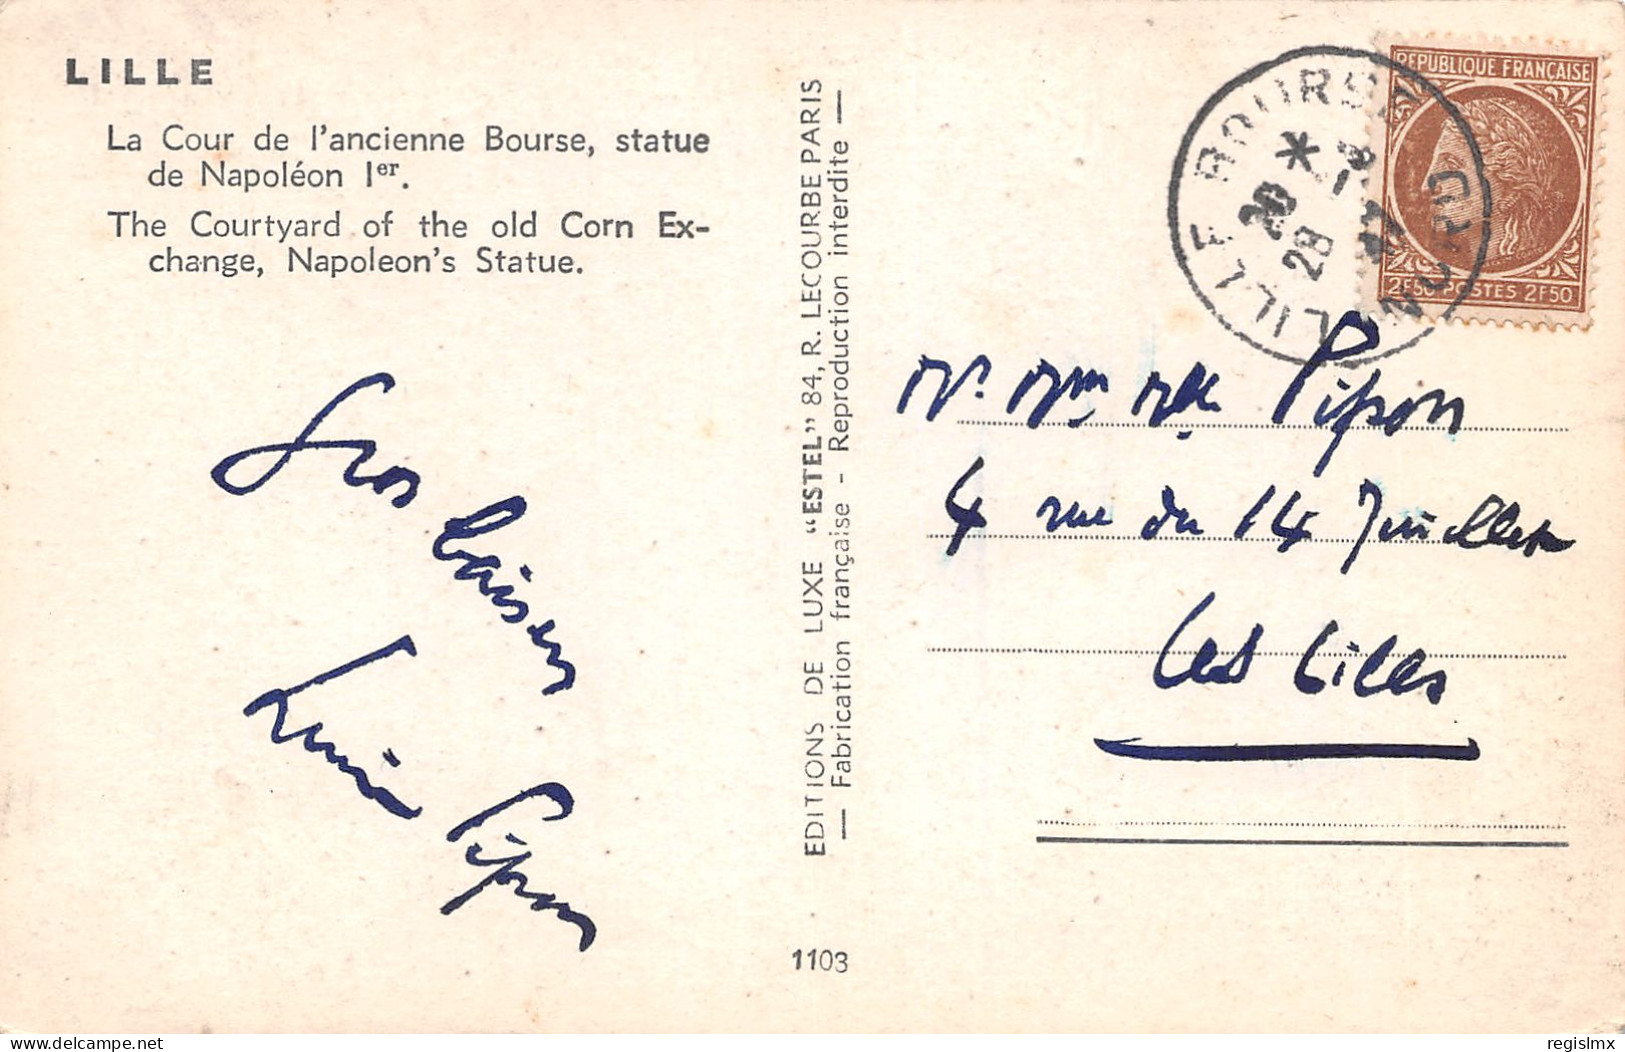 LILLE
La Cour de l'ancienne Bourse, statue
de Napoléon Ier.
The Courtyard of the old Corn Ex-
change, Napoleon's Statue.
Gros baisers
Pipon
EDITIONS DE LUXE "ESTEL" 84, R. LECOURBE PARIS
— Fabrication française - Reproduction interdite —
1103
LILLE BOURSE
NORD
20 *
28
REPUBLIQUE FRANÇAISE
2F50 POSTES 2F50
Mr Mme Mlle Pipon
4 rue du 14 Juillet
Les Lilas
delcampe.net
regislmx